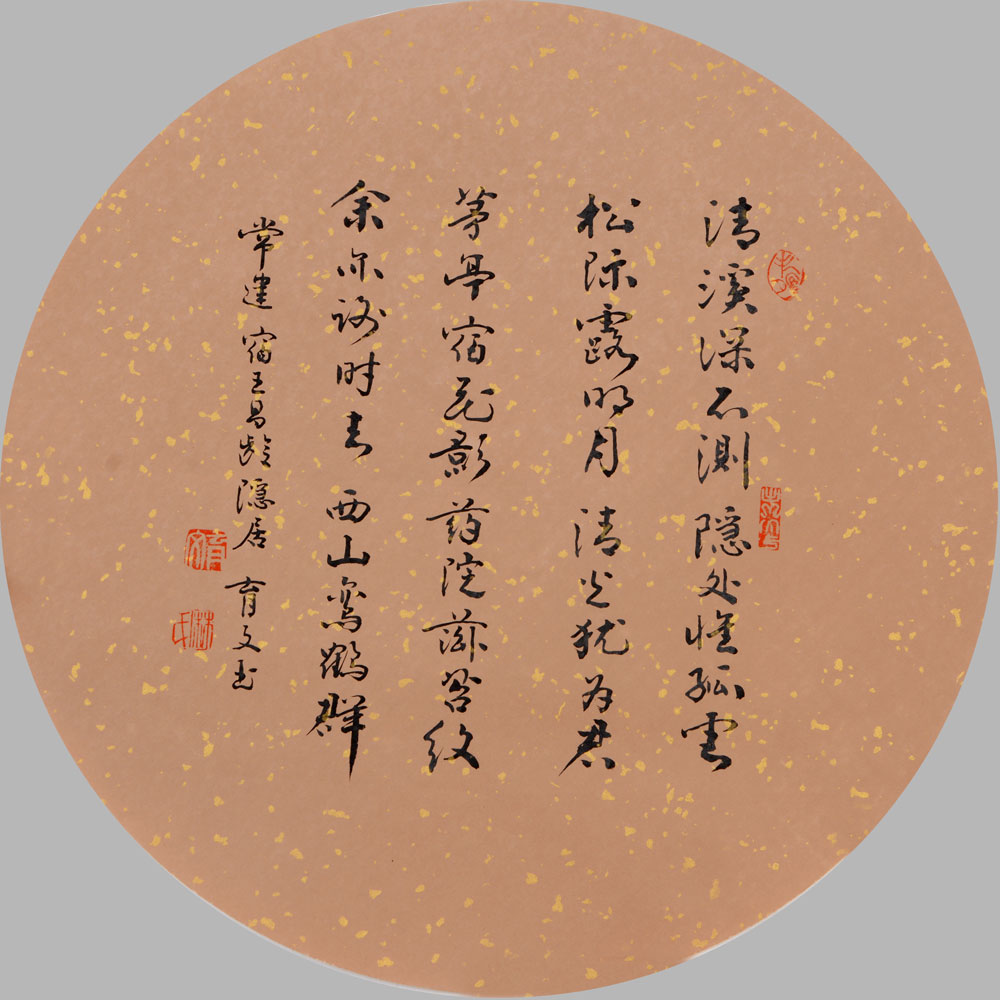 清溪深不测隐处惟孤云
松际露明月清光犹为君
茅亭宿花影药院滋苔纹
余亦谢时去西山鸾鹤群
常建宿王昌龄隐居育文书
育文
林氏